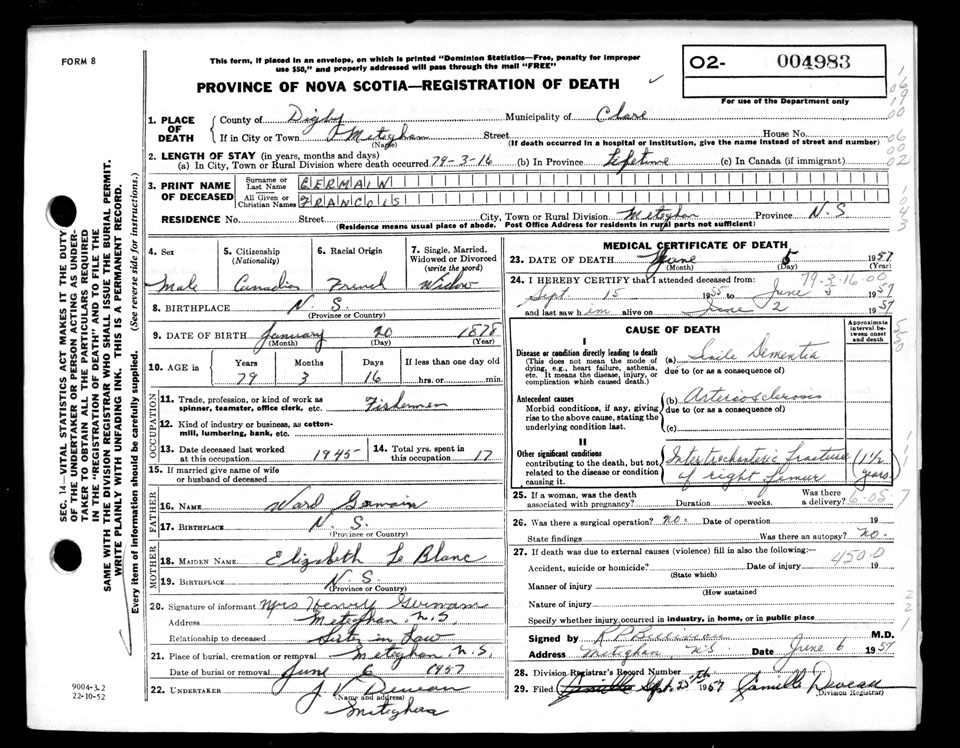 FORM 8
This form, if placed in an envelope, on which is printed "Dominion Statistics—Free, penalty for improper
use $50," and properly addressed will pass through the mail "FREE"
PROVINCE OF NOVA SCOTIA—REGISTRATION OF DEATH
O2- 004983
For use of the Department only
1. PLACE OF DEATH
County of Digby Municipality of Clare
If in City or Town Meteghan Street House No.
(Name) (If death occurred in a hospital or institution, give the name instead of street and number)
2. LENGTH OF STAY (in years, months and days)
(a) In City, Town or Rural Division where death occurred 79-3-16 (b) In Province Lifetime (c) In Canada (if immigrant)
3. PRINT NAME OF DECEASED
Surname or Last Name GERMAIN
All Given or Christian Names FRANCOIS
RESIDENCE No. Street City, Town or Rural Division Meteghan Province N.S.
(Residence means usual place of abode. Post Office Address for residents in rural parts not sufficient)
4. Sex Male
5. Citizenship (Nationality) Canadian
6. Racial Origin French
7. Single, Married, Widowed or Divorced (write the word) Widow
8. BIRTHPLACE N.S.
(Province or Country)
9. DATE OF BIRTH January 20 1878
(Month) (Day) (Year)
10. AGE in Years 79 Months 3 Days 16 If less than one day old hrs. or min.
OCCUPATION
11. Trade, profession, or kind of work as spinner, teamster, office clerk, etc. Fishermen
12. Kind of industry or business, as cotton-mill, lumbering, bank, etc.
13. Date deceased last worked at this occupation 1945 14. Total yrs. spent in this occupation 17
15. If married give name of wife or husband of deceased
FATHER
16. NAME Ward Germain
17. BIRTHPLACE N.S.
(Province or Country)
MOTHER
18. MAIDEN NAME Elizabeth Le Blanc
19. BIRTHPLACE N.S.
(Province or Country)
20. Signature of informant Mrs Germain
Address Meteghan N.S.
Relationship to deceased Sister in Law
21. Place of burial, cremation or removal Meteghan N.S.
Date of burial or removal June 6 1957
22. UNDERTAKER J V Deveau
(Name and address)
Meteghan
9004-3.2
22-10-52
MEDICAL CERTIFICATE OF DEATH
23. DATE OF DEATH June 5 1957
(Month) (Day) (Year)
79-3-16-00
24. I HEREBY CERTIFY that I attended deceased from:
Sept. 15 1955 to June 5 1957
and last saw him alive on June 2 1957
CAUSE OF DEATH
Approximate interval between onset and death
I
Disease or condition directly leading to death
(This does not mean the mode of dying, e.g., heart failure, asthenia, etc. It means the disease, injury, or complication which caused death.)
(a) Senile Dementia
due to (or as a consequence of)
Antecedent causes
Morbid conditions, if any, giving rise to the above cause, stating the underlying condition last.
(b) Arteriosclerosis
due to (or as a consequence of)
(c)
II
Other significant conditions
contributing to the death, but not related to the disease or condition causing it.
Intertrochanteric fracture of right femur (1 1/2 years)
25. If a woman, was the death associated with pregnancy? Duration weeks. Was there a delivery?
26. Was there a surgical operation? no. Date of operation 19
State findings Was there an autopsy? no.
27. If death was due to external causes (violence) fill in also the following:—
450.0
Accident, suicide or homicide? Date of injury 19
(State which)
Manner of injury
(How sustained)
Nature of injury
Specify whether injury occurred in industry, in home, or in public place
Signed by M.D.
Address Meteghan N.S. Date June 6 1957
28. Division Registrar's Record Number
29. Filed Sept. 1957 Camille Deveau
(Division Registrar)
SEC. 14—VITAL STATISTICS ACT MAKES IT THE DUTY
OF THE UNDERTAKER OR PERSON ACTING AS UNDER-
TAKER TO OBTAIN ALL THE PARTICULARS REQUIRED
IN THE "REGISTRATION OF DEATH" AND TO FILE THE
SAME WITH THE DIVISION REGISTRAR WHO SHALL ISSUE THE BURIAL PERMIT.
WRITE PLAINLY WITH UNFADING INK. THIS IS A PERMANENT RECORD.
Every item of information should be carefully supplied. (See reverse side for instructions.)